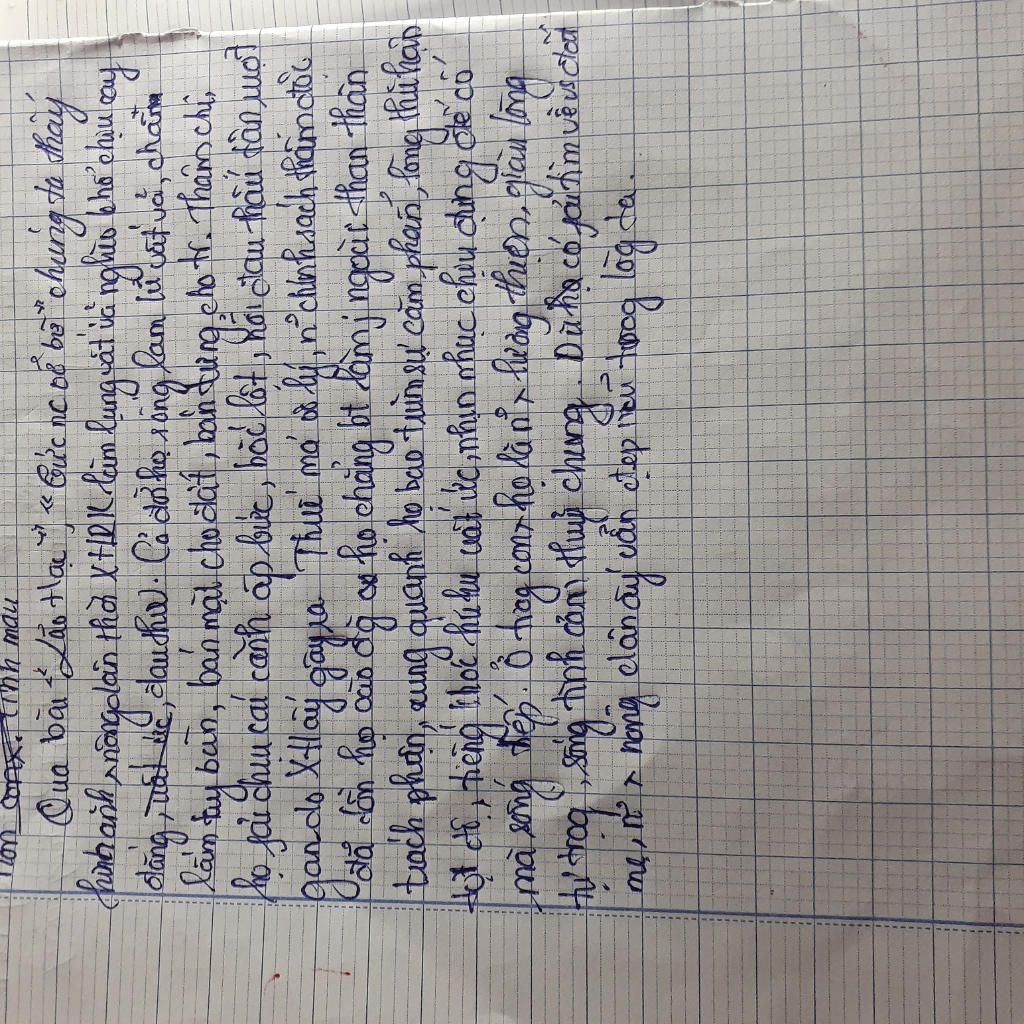 Qua bài "Lão Hạc", "Tức nc vỡ bờ" chúng ta thấy
hình ảnh x nông dân thời XHPK làm lụng vất vả nghèo khổ chịu cay
đắng, đau thương. Cả đời họ sống lam lũ vất vả, chăm
lấm tay bùn, bán mặt cho đất, bán lưng cho tr. Thậm chí,
họ fải chịu cái cảnh áp bức, bóc lột, nỗi đau thấu tận ruột
gan do XH ấy gây ra Thuế má vô lý, n° chính sách thâm độc
đã dồn họ vào đg họ chẳng bt làm j ngoài than thân
trách phận, xung quanh họ bao trùm sự căm phẫn, lòng thù hận
tột độ, tiếng khóc hu hu uất ức, nhẫn nhục chịu đựng để có
mà sống tiếp. Ở trog con x họ là n° x lương thiện, giàu lòng
tự trọg, sống tình cảm thuỷ chung. Dù họ có fải tìm về vs đất
mẹ, n° x nông dân ấy vẫn đẹp mãi trog lòg ta.